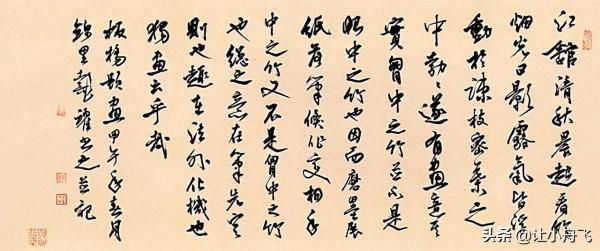 江館清秋晨起看竹
烟光日影露氣皆浮
動於疎枝密葉之
中勃々遂有畫意其
實胸中之竹並不是
眼中之竹也因而磨墨展
紙落筆倏作變相手
中之竹又不是胸中之竹
也總之意在筆先定
則也趣在法外化機也
獨畫云乎哉
板橋題畫甲午年春月
錦里書之並記
头条 @让小舟飞